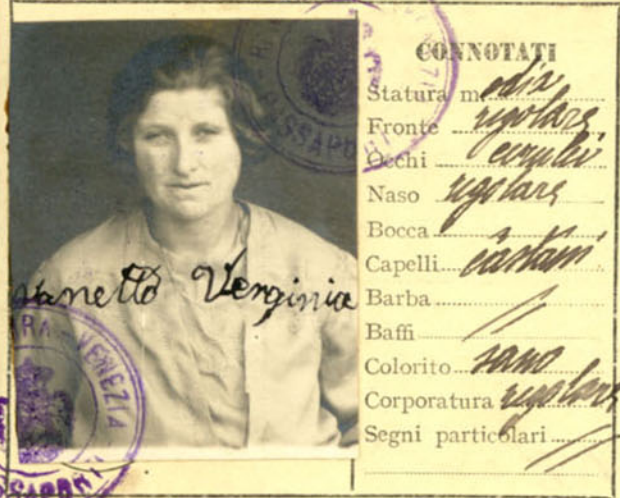 CONNOTATI
Statura media
Fronte regolare
Occhi cerulei
Naso regolare
Bocca
Capelli castani
Barba //
Baffi
Colorito sano
Corporatura regolare
Segni particolari //
anetto Verginia
VENEZIA